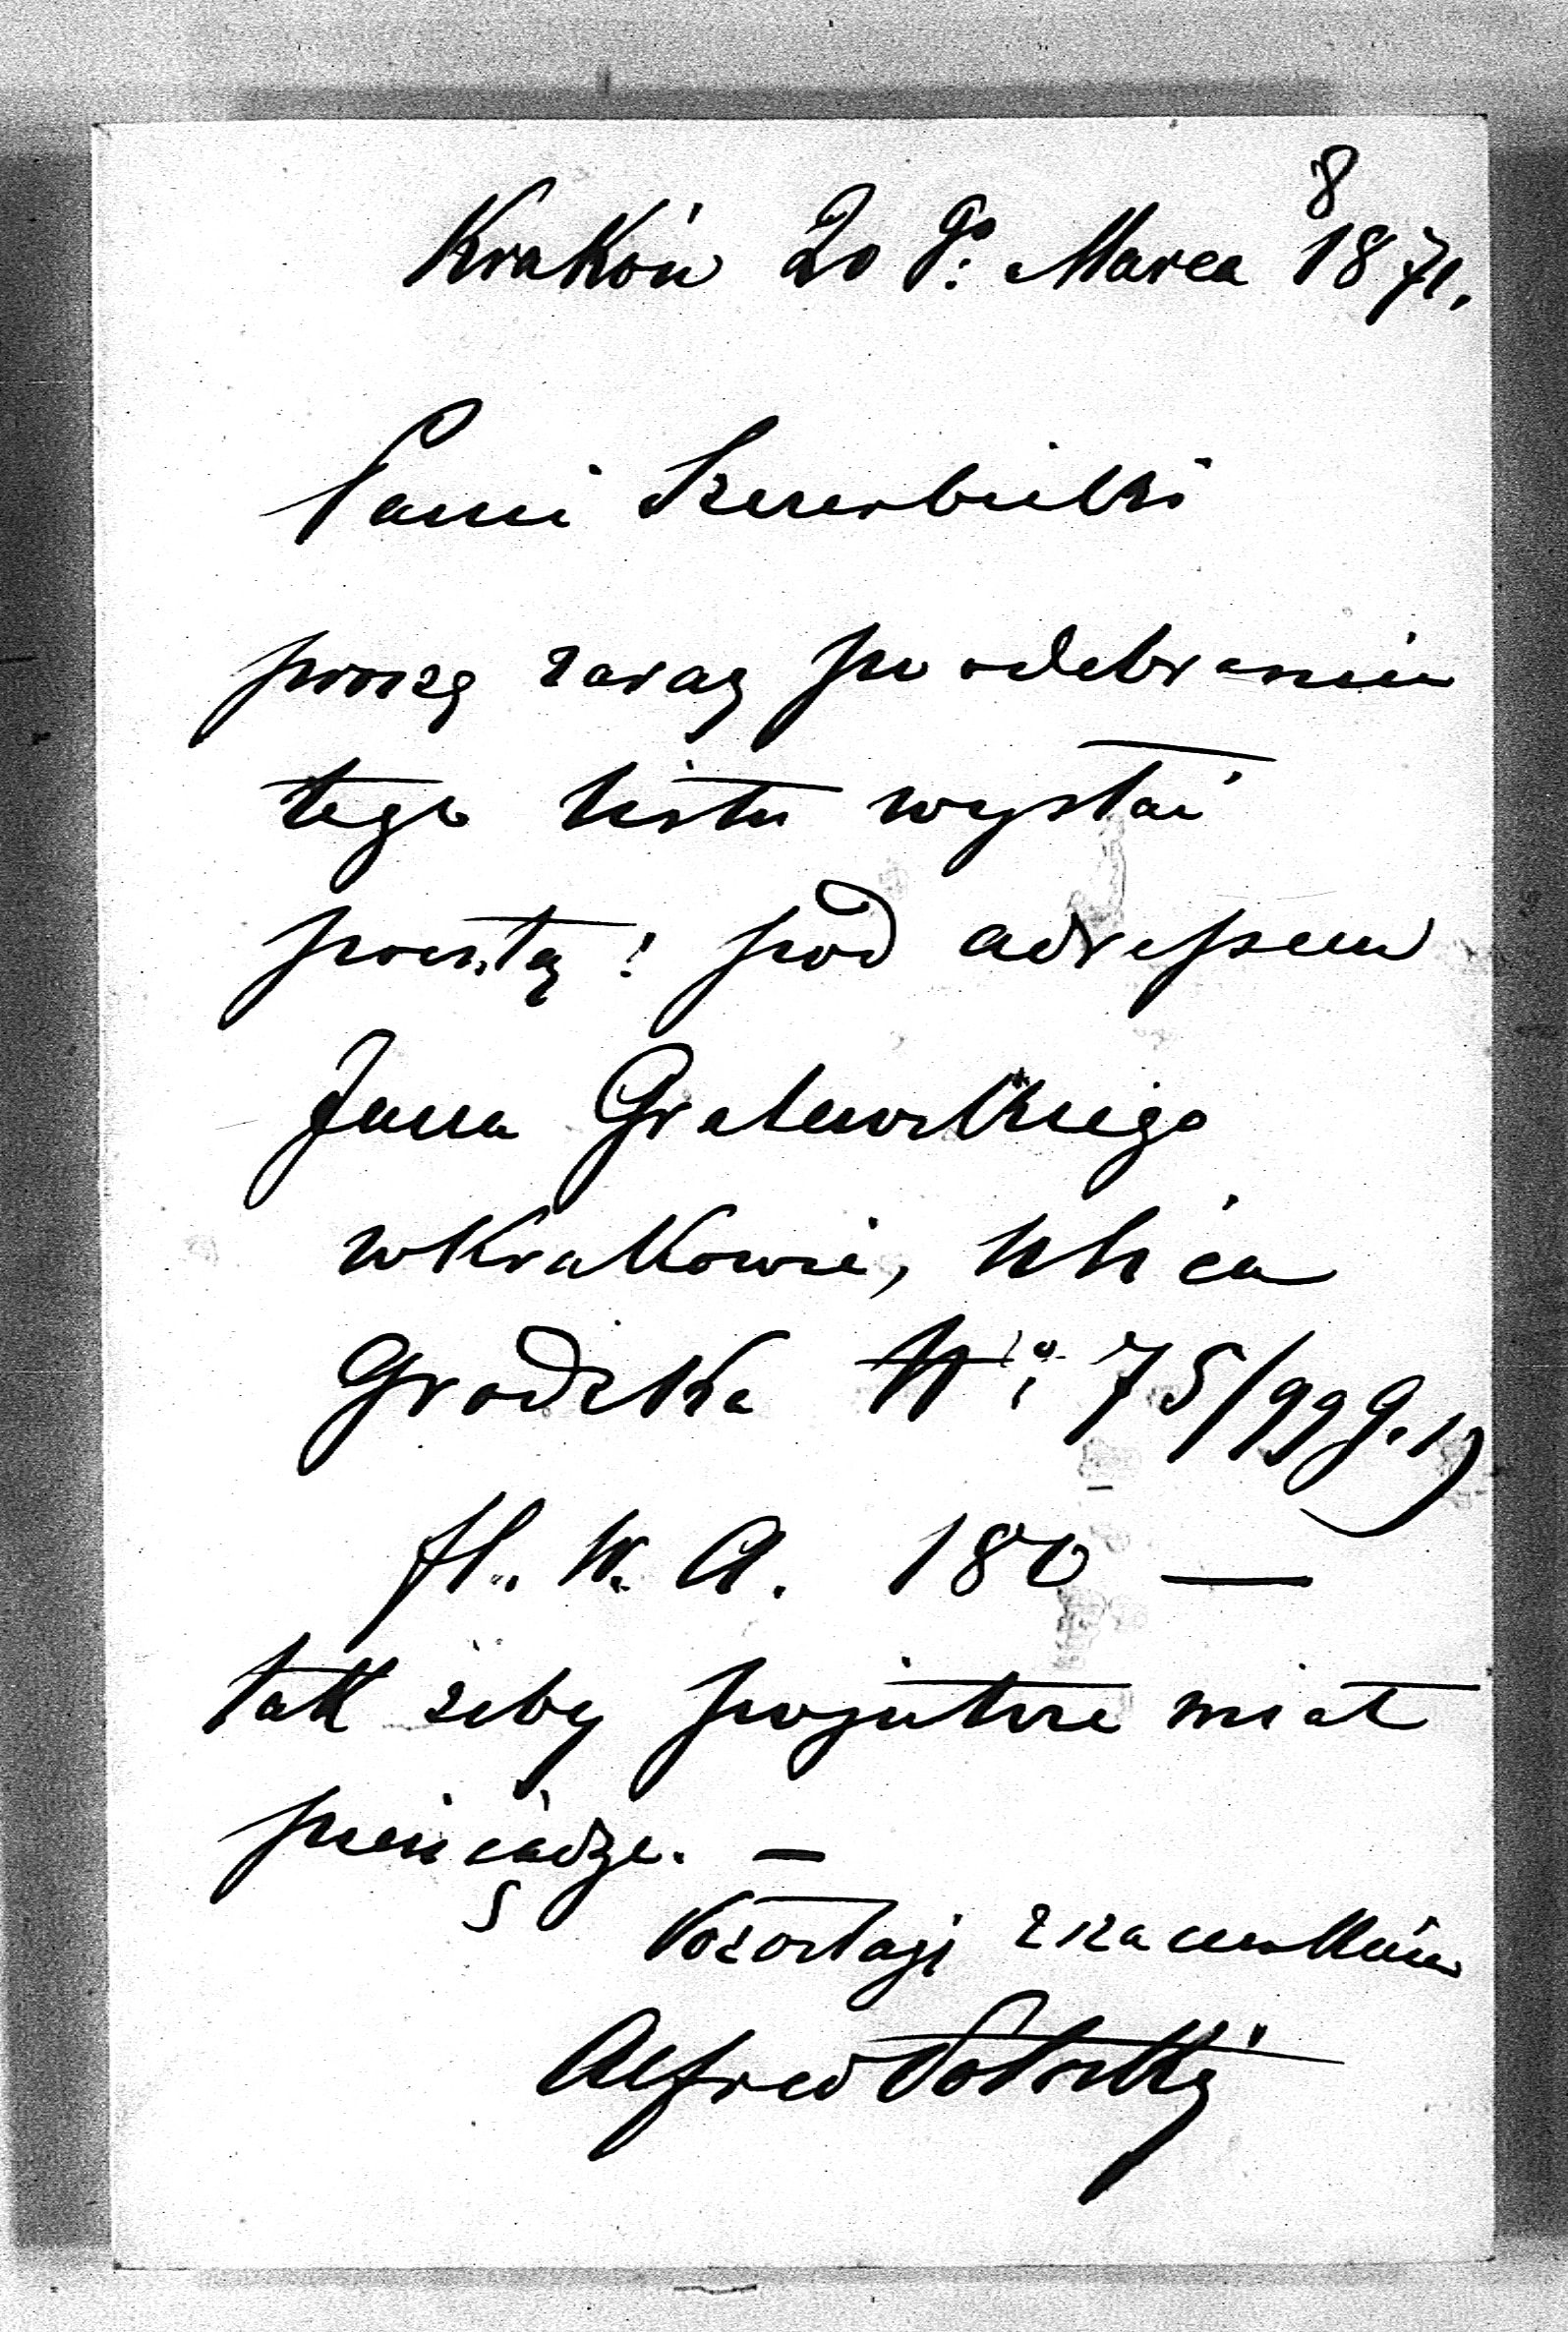 8
Kraków 20 go: Marca 1871.
Panie Szczerbicki
proszę zaraz po odebraniu
tego listu wysłać
pocztą: pod adressem
Jana Gralewskiego
w Krakowie, ulica
Grodzka No: 75/99 g. 1)
fl. W. A. 180 —
tak żeby pojutrze miał
pieniądze. —
Pozostaję z szacunkiem
Alfred Potocki